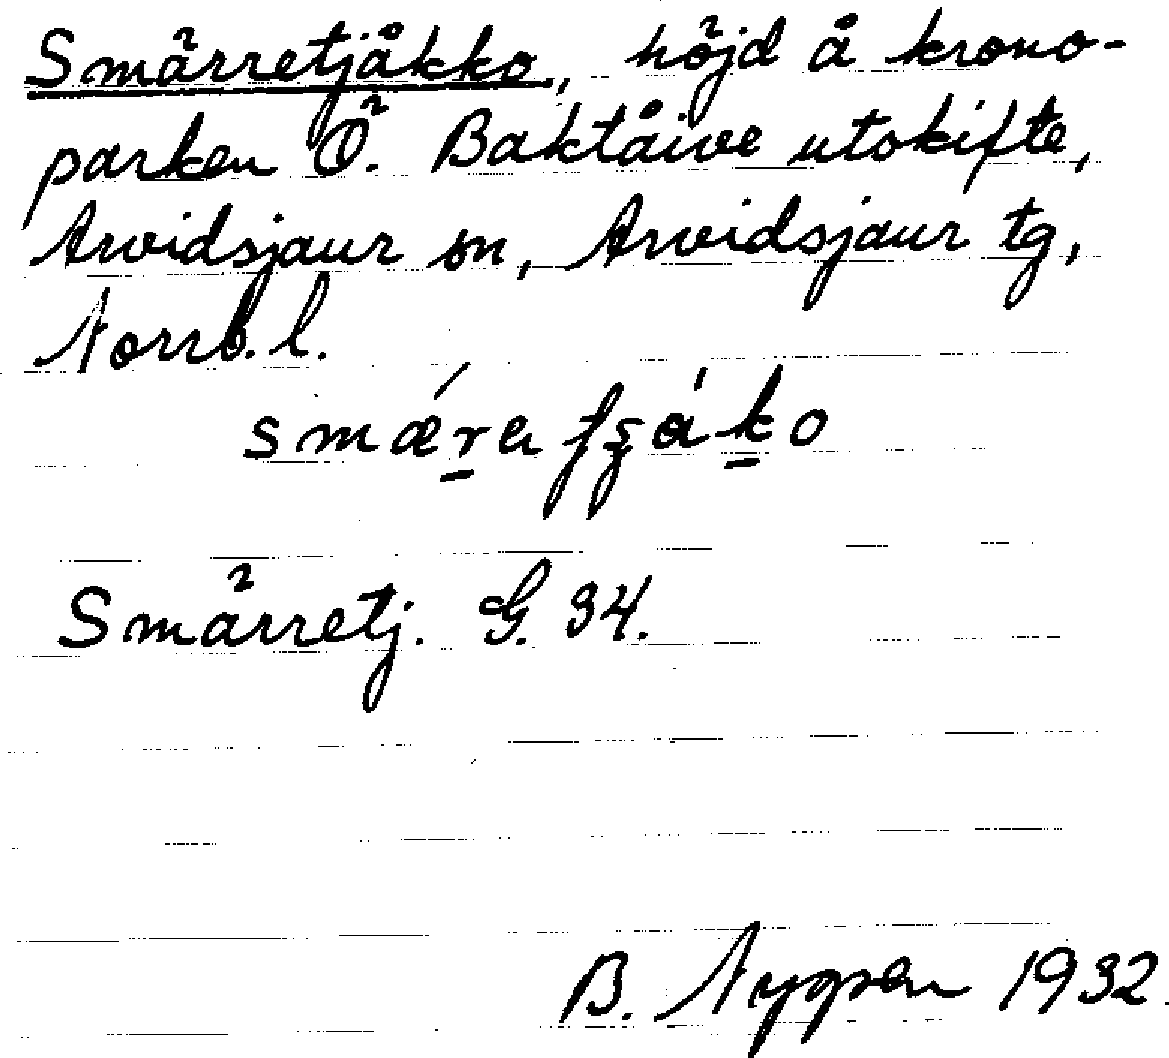 Smärretjåkko, höjd å krono-
parken Ö. Baktåive utskifte,
Arvidsjaur sn, Arvidsjaur tg,
Norrb. l.
Smärretj. G. 34.
B. 1932.